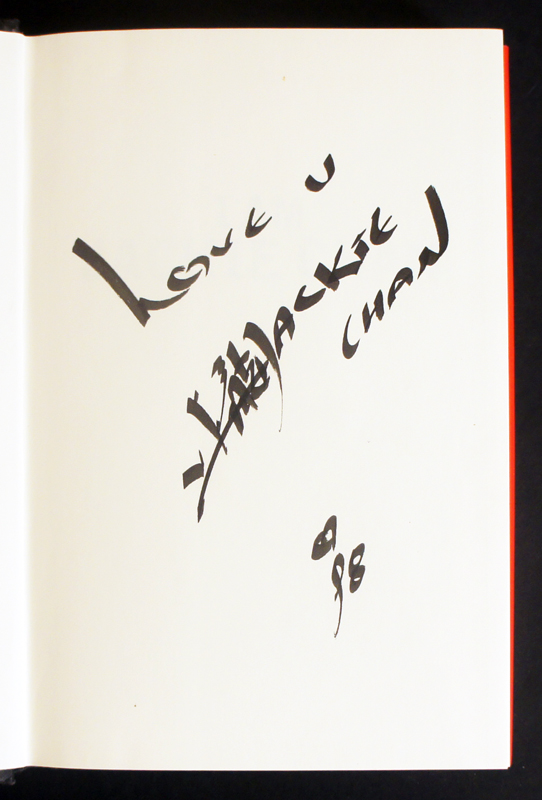 Love U
JACKIE
CHAN
8
98